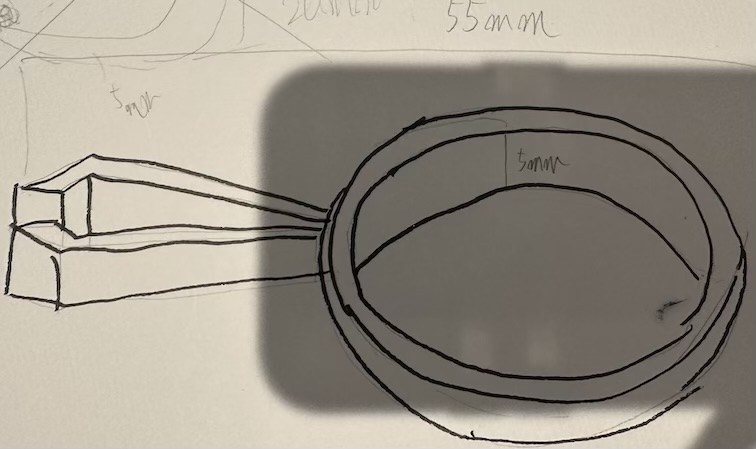 20mm
55mm
5mm
5mm